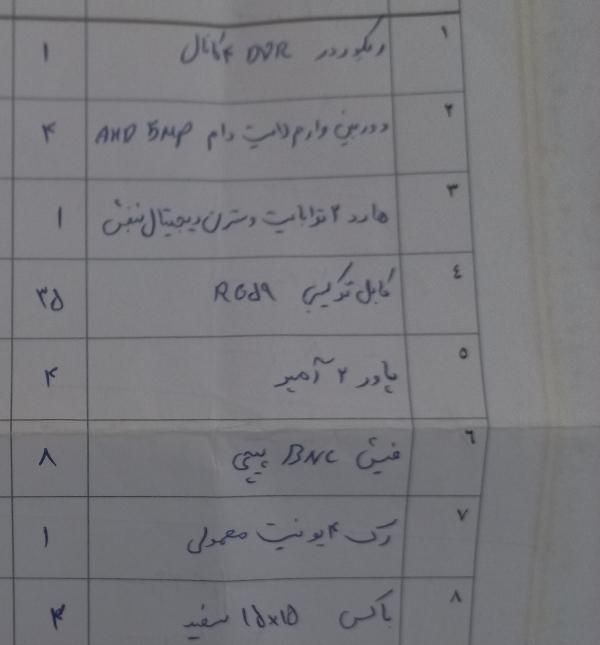 ۱ رکوردر DVR ۴ کانال ۱
۲ دوربین وارم لایت دام AHD 5MP ۴
۳ هارد ۲ ترابایت وسترن دیجیتال بنفش ۱
٤ کابل ترکیبی RG59 ۳۵
٥ پاور ۲ آمپر ۴
٦ فیش BNC پیچی ۸
۷ رک ۴ یونیت معمولی ۱
۸ باکس ۱۵x۱۵ سفید ۴